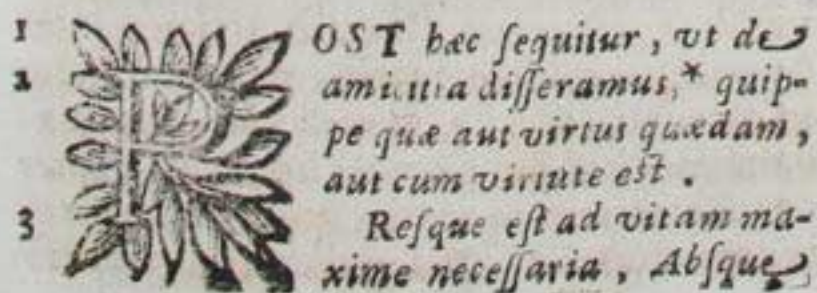 1 POST hæc ſequitur, vt de
2 amicitia diſſeramus,* quip-
pe quæ aut virtus quædam,
aut cum virtute eſt.
3 Reſque eſt ad vitam ma-
xime neceſſaria, Abſque